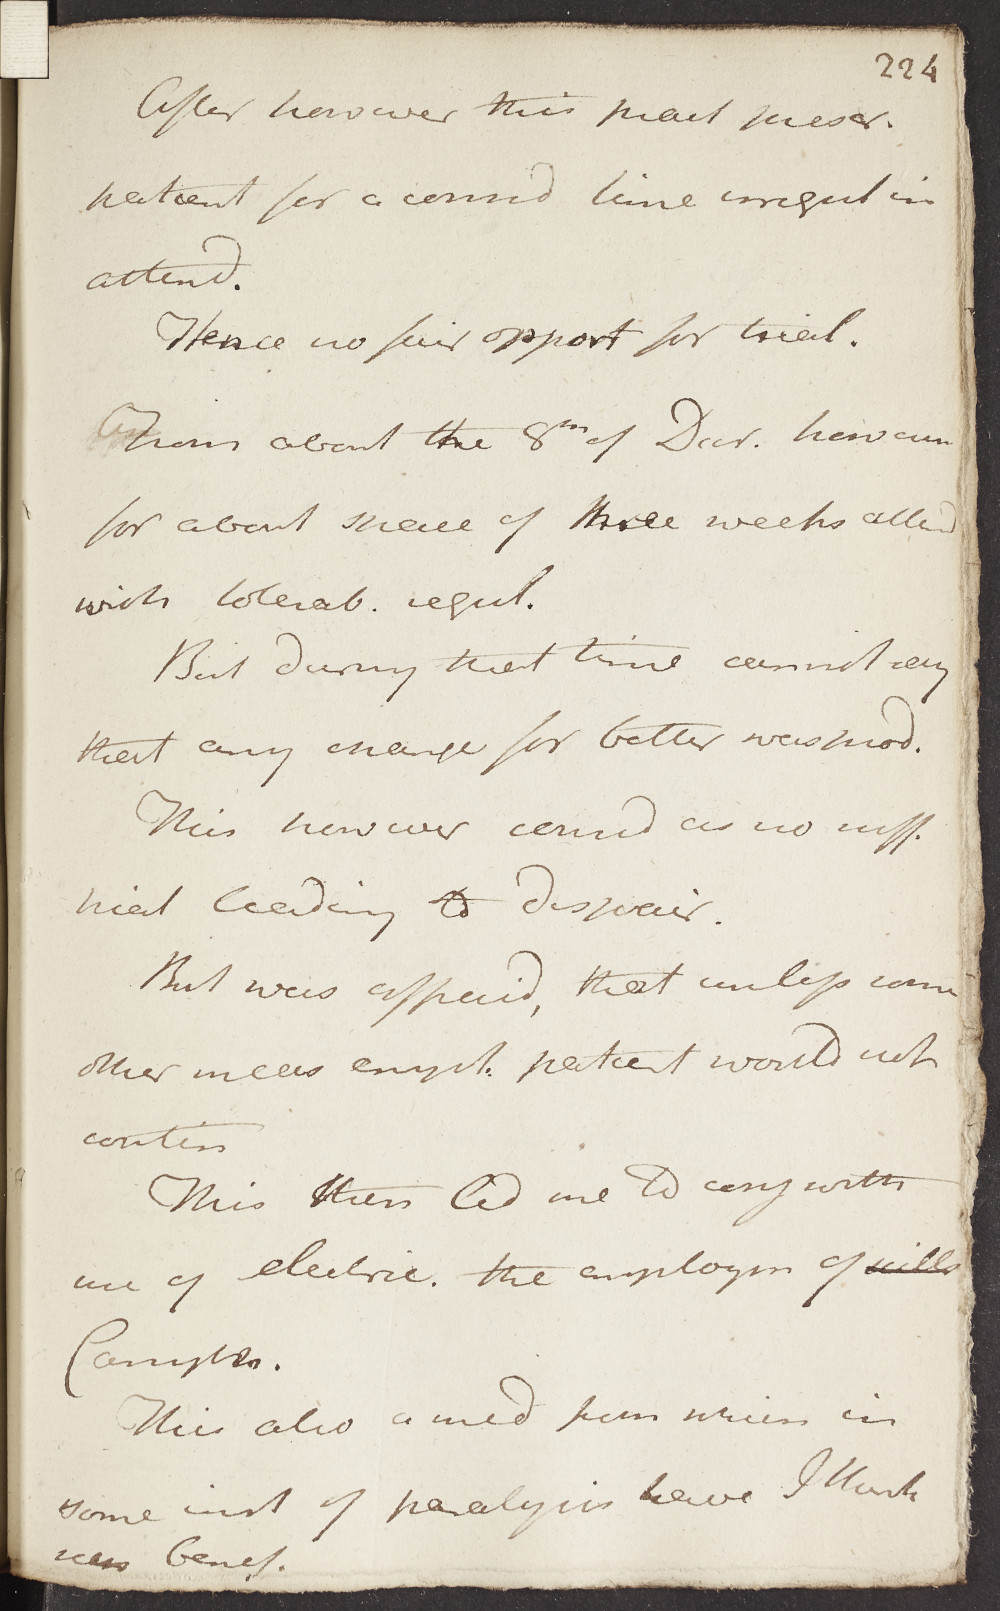 224
After however this pract prescr.
patient for a consid time irregul in
attend.
Hence no fair opport for trial.
From about the 8th of Decr. however
for about space of three weeks attend
with tolerab. regul.
But during that time cannot say
that any change for better was prod.
This however consid as no suff.
trial leading to despair.
But was affraid, that unless some
other meas empl. patient would not
contin
This then led me to conj with
use of electric. the employm of pills
Camphr.
This also a med from which in
some inst of paralysis have I think
seen benef.